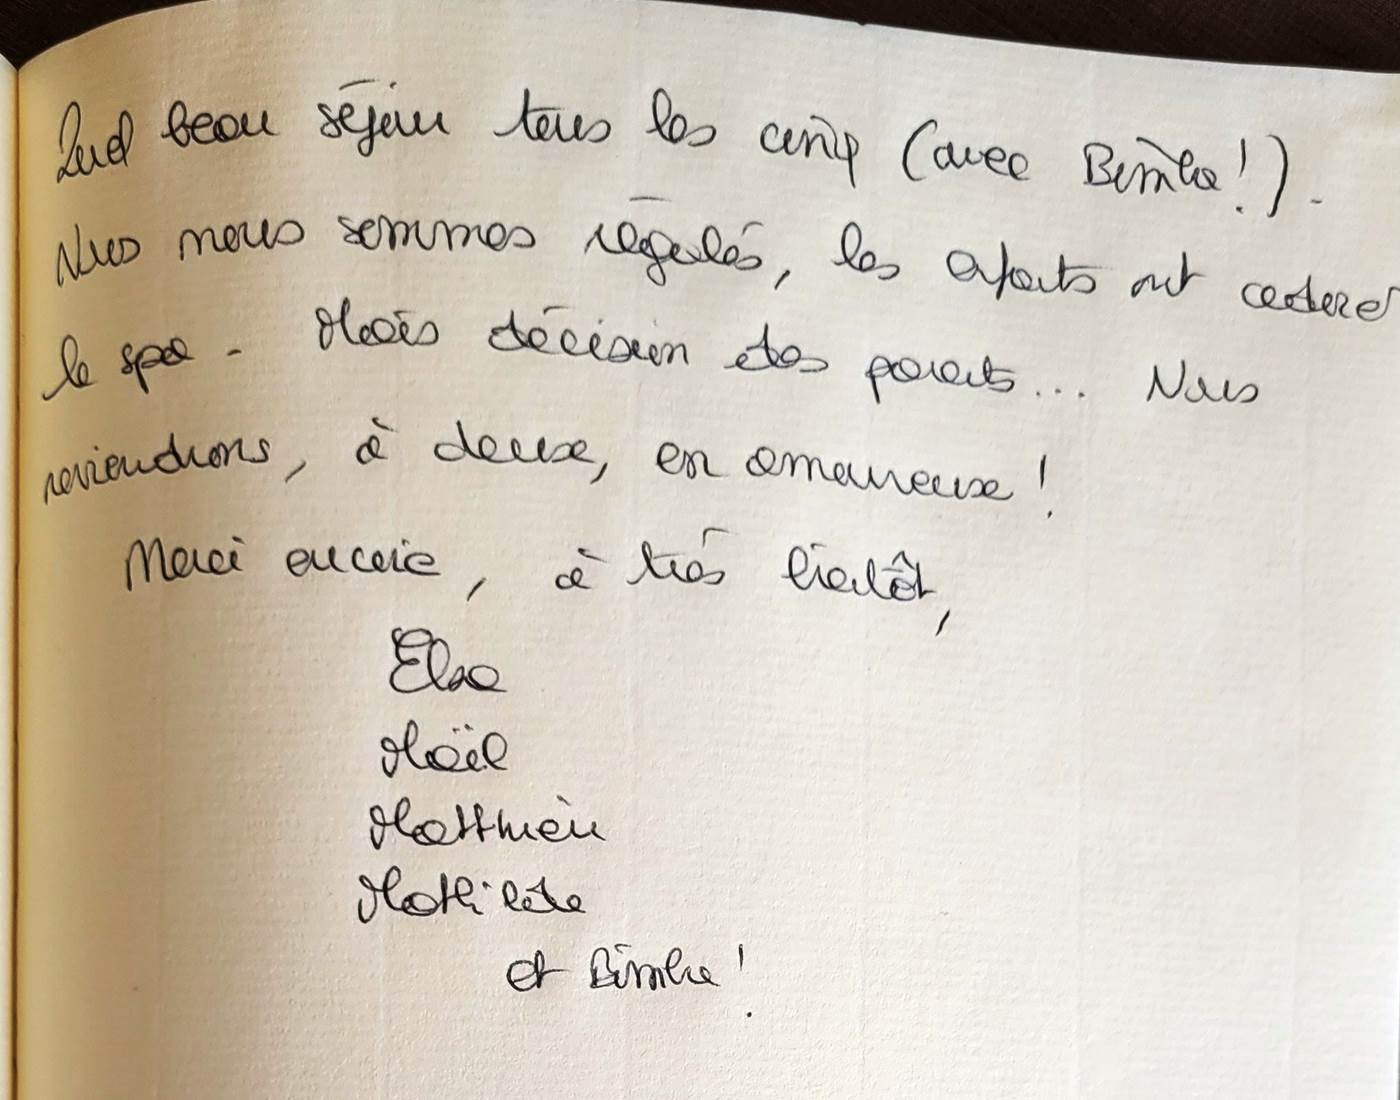 Quel beau séjour tous les cinq (avec Bimba!).
Nous nous sommes régalés, les enfants ont adoré
le spa. Mais décision des parents... Nous
reviendrons, à deux, en amoureux !
Merci encore, à très bientôt,
Elsa
Maël
Matthieu
Mathilde
et Bimba !